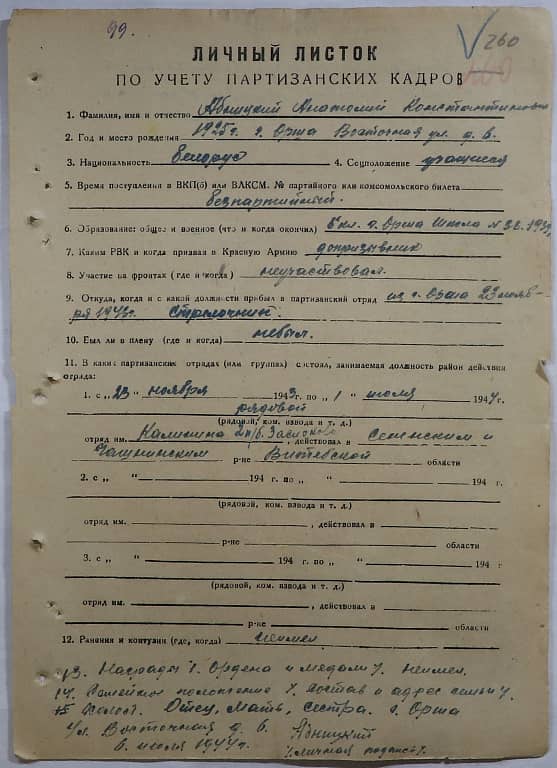 99.
260
ЛИЧНЫЙ ЛИСТОК
ПО УЧЕТУ ПАРТИЗАНСКИХ КАДРОВ
1. Фамилия, имя и отчество Абницкий Анатолий Константинович
2. Год и место рождения 1925г. г. Орша Восточная ул. д. 6.
3. Национальность белорус 4. Соцположение учащийся
5. Время поступления в ВКП(б) или ВЛКСМ. № партийного или комсомольского билета
беспартийный.
6. Образование: общее и военное (что и когда окончил) 5 кл. г. Орша Школа N
7. Каким РВК и когда призван в Красную Армию допризывник
8. Участие на фронтах (где и когда) неучаствовал.
9. Откуда, когда и с какой должности прибыл в партизанский отряд из г. Орша 23 нояб-
ря 1943г. Стрелочник.
10. Был ли в плену (где и когда) небыл.
11. В каких партизанских отрядах (или группах) состоял, занимаемая должность район действия
отряда:
1. с „ 23 " ноября 1943г. по „ 1 " июля 1944г.
рядовой
(рядовой, ком. взвода и т. д.)
отряд им. Калинина п/б. Заслонова, действовал в Сененским и
Чашнинским р-не Витебской области
2. с „ " 194 г. по „ " 194 г.
(рядовой, ком. взвода и т. д.)
отряд им. , действовал в
р-не области
3. с „ " 194 г. по „ " 194 г.
(рядовой, ком. взвода и т. д.)
отряд им. , действовал в
р-не области
12. Ранения и контузии (где, когда) неимел
13. Награды /. Ордена и медали /. неимел.
14. Семейное положение /. состав и адрес семьи /.
Холост. Отец, Мать, сестра. г. Орша
ул. Восточная д. 6. Абницкий
6. июля 1944г. /. личная подпись /.